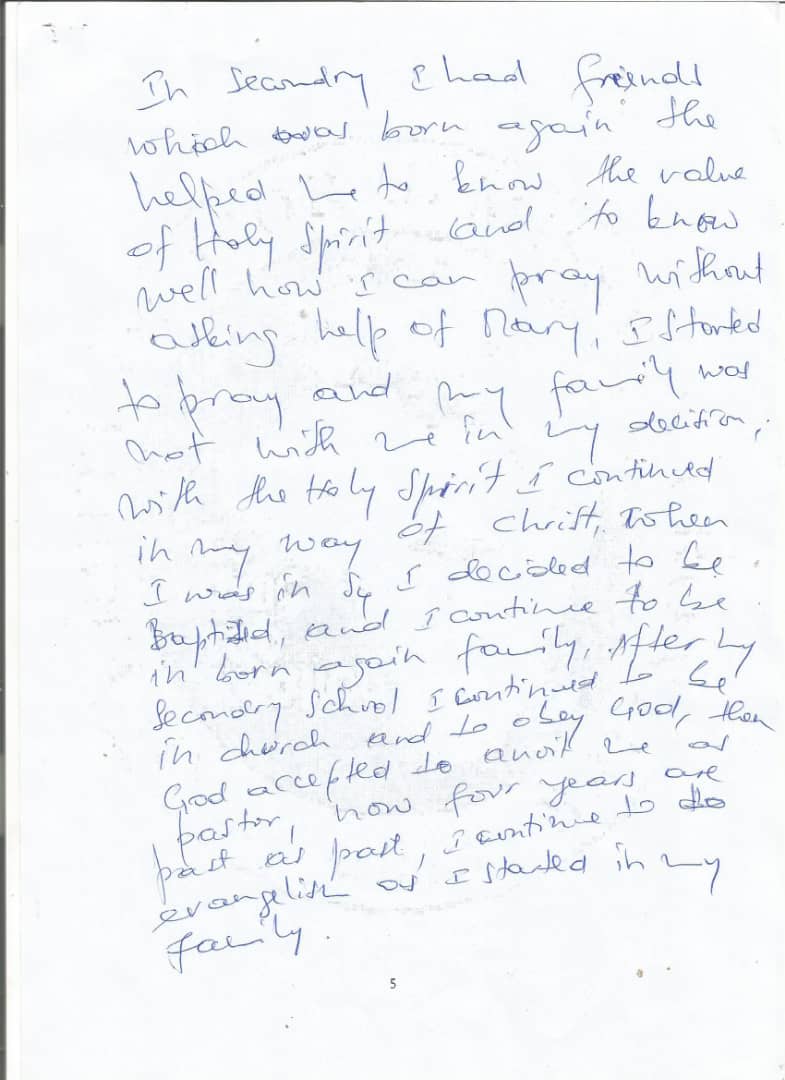 In Secondry I had friends
which was born again the
helped me to know the value
of Holy Spirit and to know
well how I can pray without
asking help of Mary, I started
to pray and my family was
not with me in my decision,
with the Holy Spirit I continued
in my way of Christ, When
I was in S4 I decided to be
Baptized, and I continue to be
in born again family, After my
Secondry School I continued to be
in church and to obey God, then
God accepted to anoit me as
pastor, now four years are
past as past, I continue to do
evangelism as I started in my
family.
5